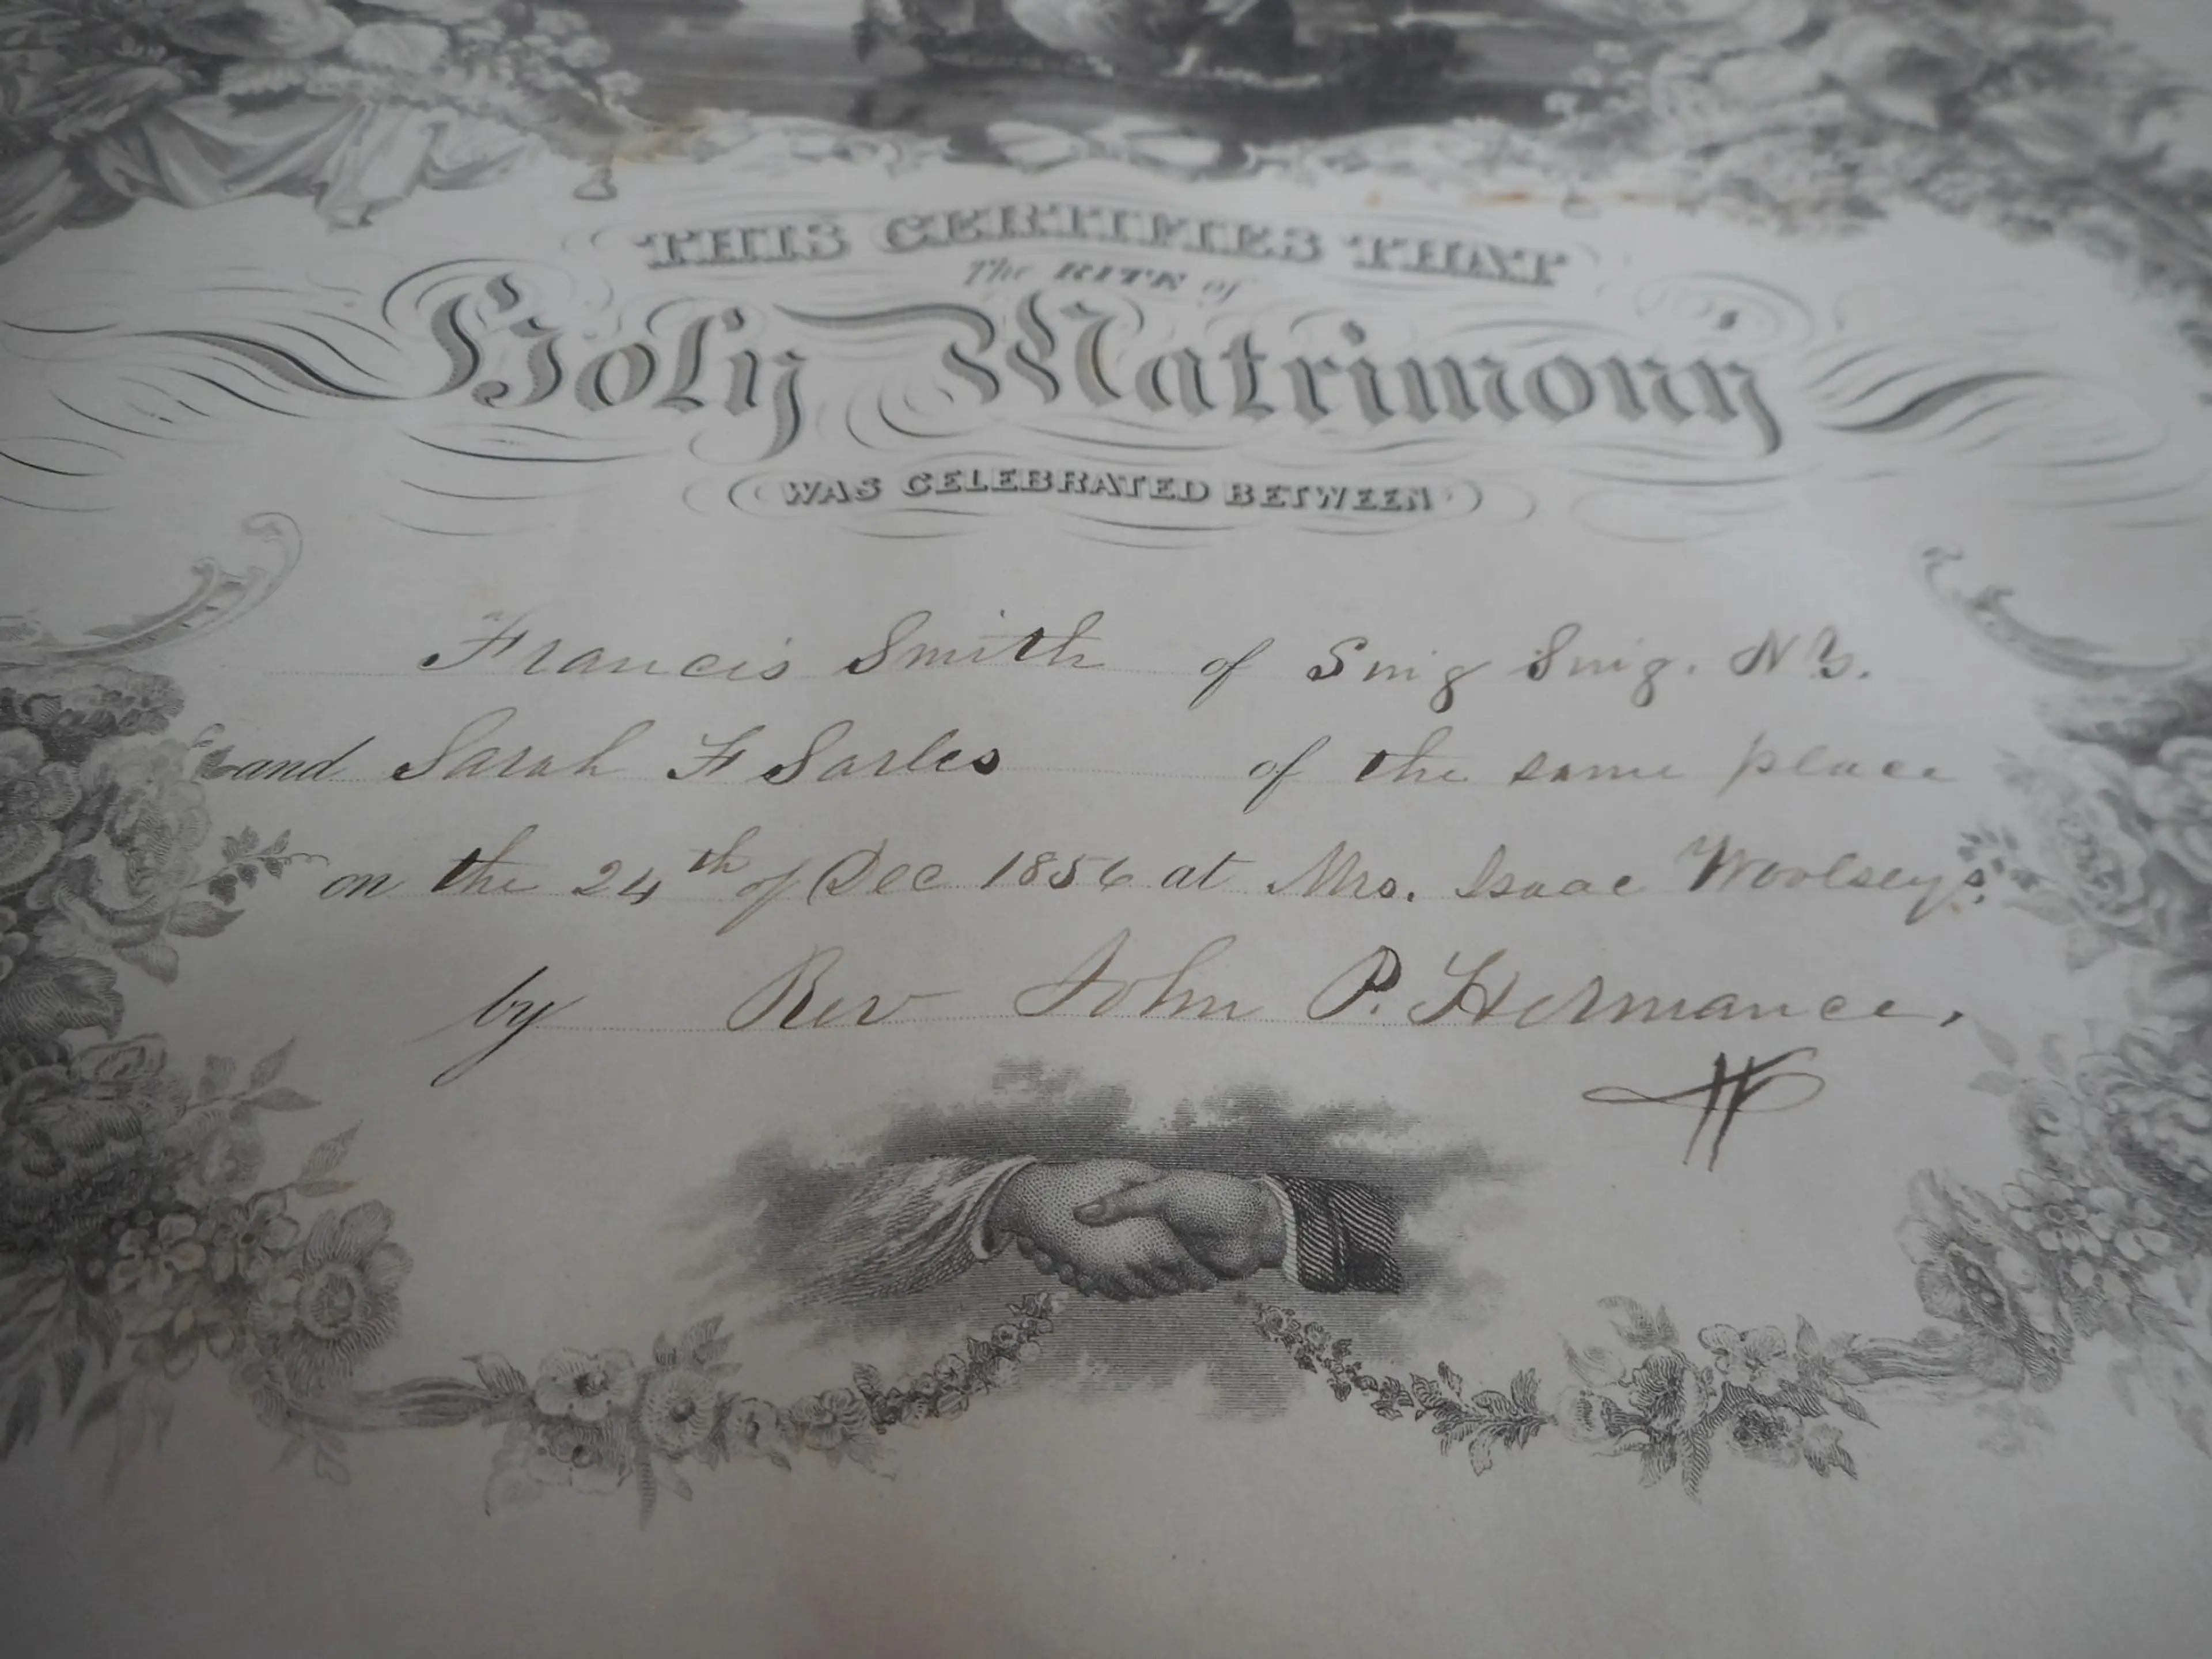 THIS CERTIFIES THAT
The RITE of
Holy Matrimony
WAS CELEBRATED BETWEEN
Francis Smith of Sing Sing. N Y.
and Sarah F Sarles of the same place
on the 24th of Dec 1856 at Mrs. Isaac Woolsey's.
by Rev John P. Hermance,